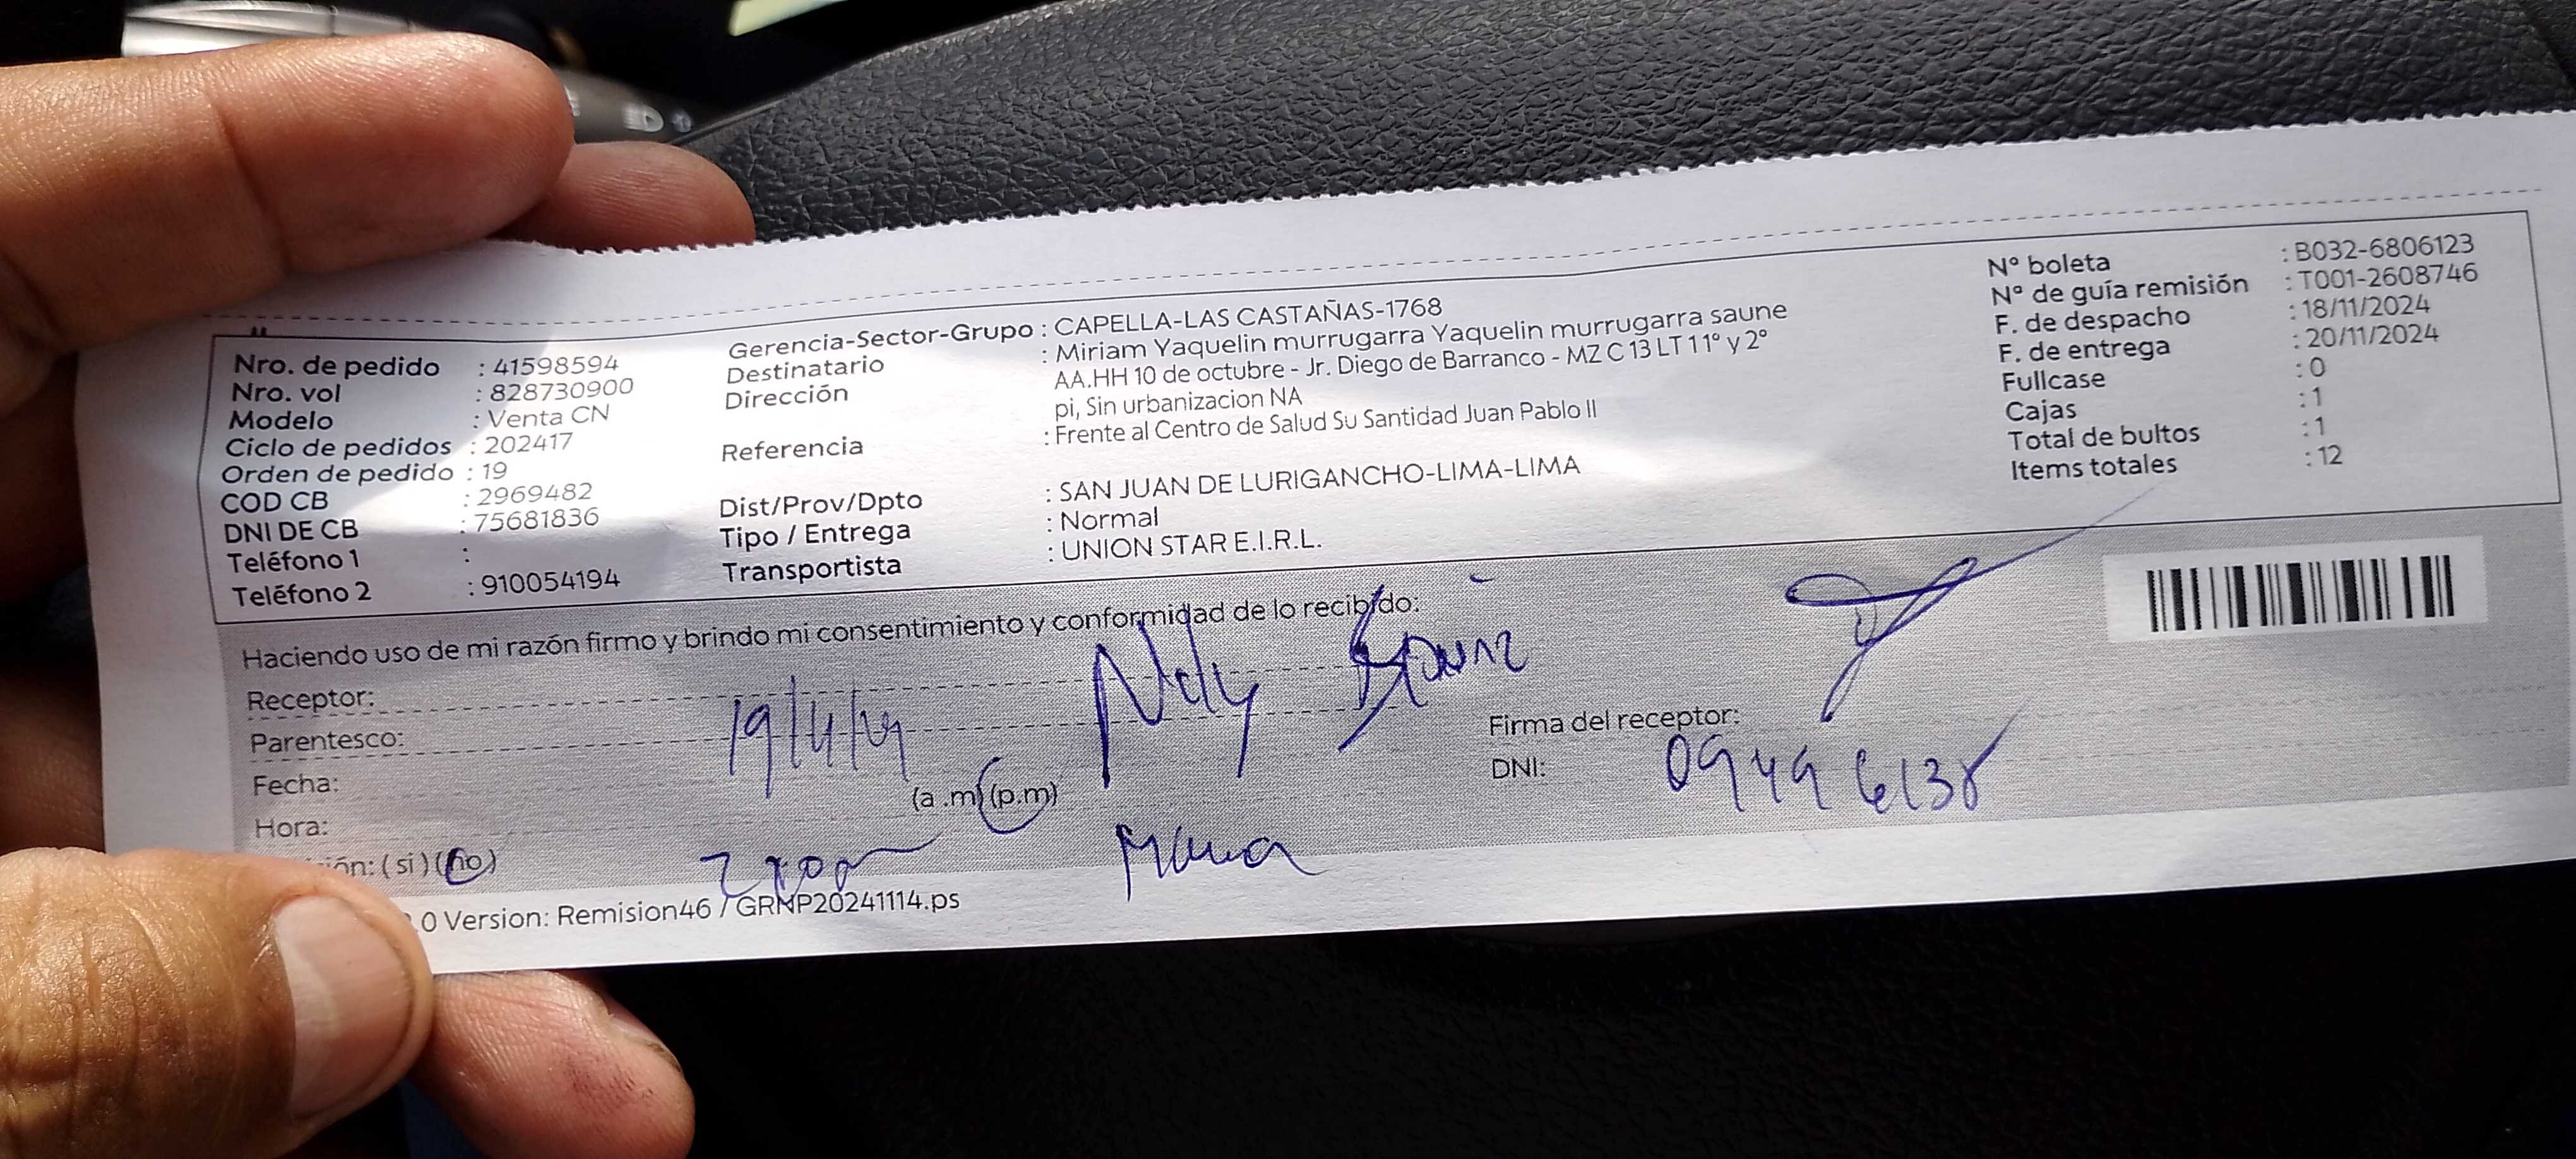 Nro. de pedido : 41598594
Nro. vol : 828730900
Modelo : Venta CN
Ciclo de pedidos : 202417
Orden de pedido : 19
COD CB : 2969482
DNI DE CB : 75681836
Teléfono 1 :
Teléfono 2 : 910054194
Gerencia-Sector-Grupo : CAPELLA-LAS CASTAÑAS-1768
Destinatario : Miriam Yaquelin murrugarra Yaquelin murrugarra saune
Dirección AA.HH 10 de octubre - Jr. Diego de Barranco - MZ C 13 LT 1 1° y 2°
pi, Sin urbanizacion NA
Referencia : Frente al Centro de Salud Su Santidad Juan Pablo II
Dist/Prov/Dpto : SAN JUAN DE LURIGANCHO-LIMA-LIMA
Tipo / Entrega : Normal
Transportista : UNION STAR E.I.R.L.
N° boleta : B032-6806123
N° de guía remisión : T001-2608746
F. de despacho : 18/11/2024
F. de entrega : 20/11/2024
Fullcase : 0
Cajas : 1
Total de bultos : 1
Items totales : 12
Haciendo uso de mi razón firmo y brindo mi consentimiento y conformidad de lo recibido:
Receptor:
Parentesco:
Fecha: 19/11/24
Hora: (a .m) (p.m)
ión: ( si ) (no)
Firma del receptor:
DNI: 09496138
0 Version: Remision46 / GRNP20241114.ps